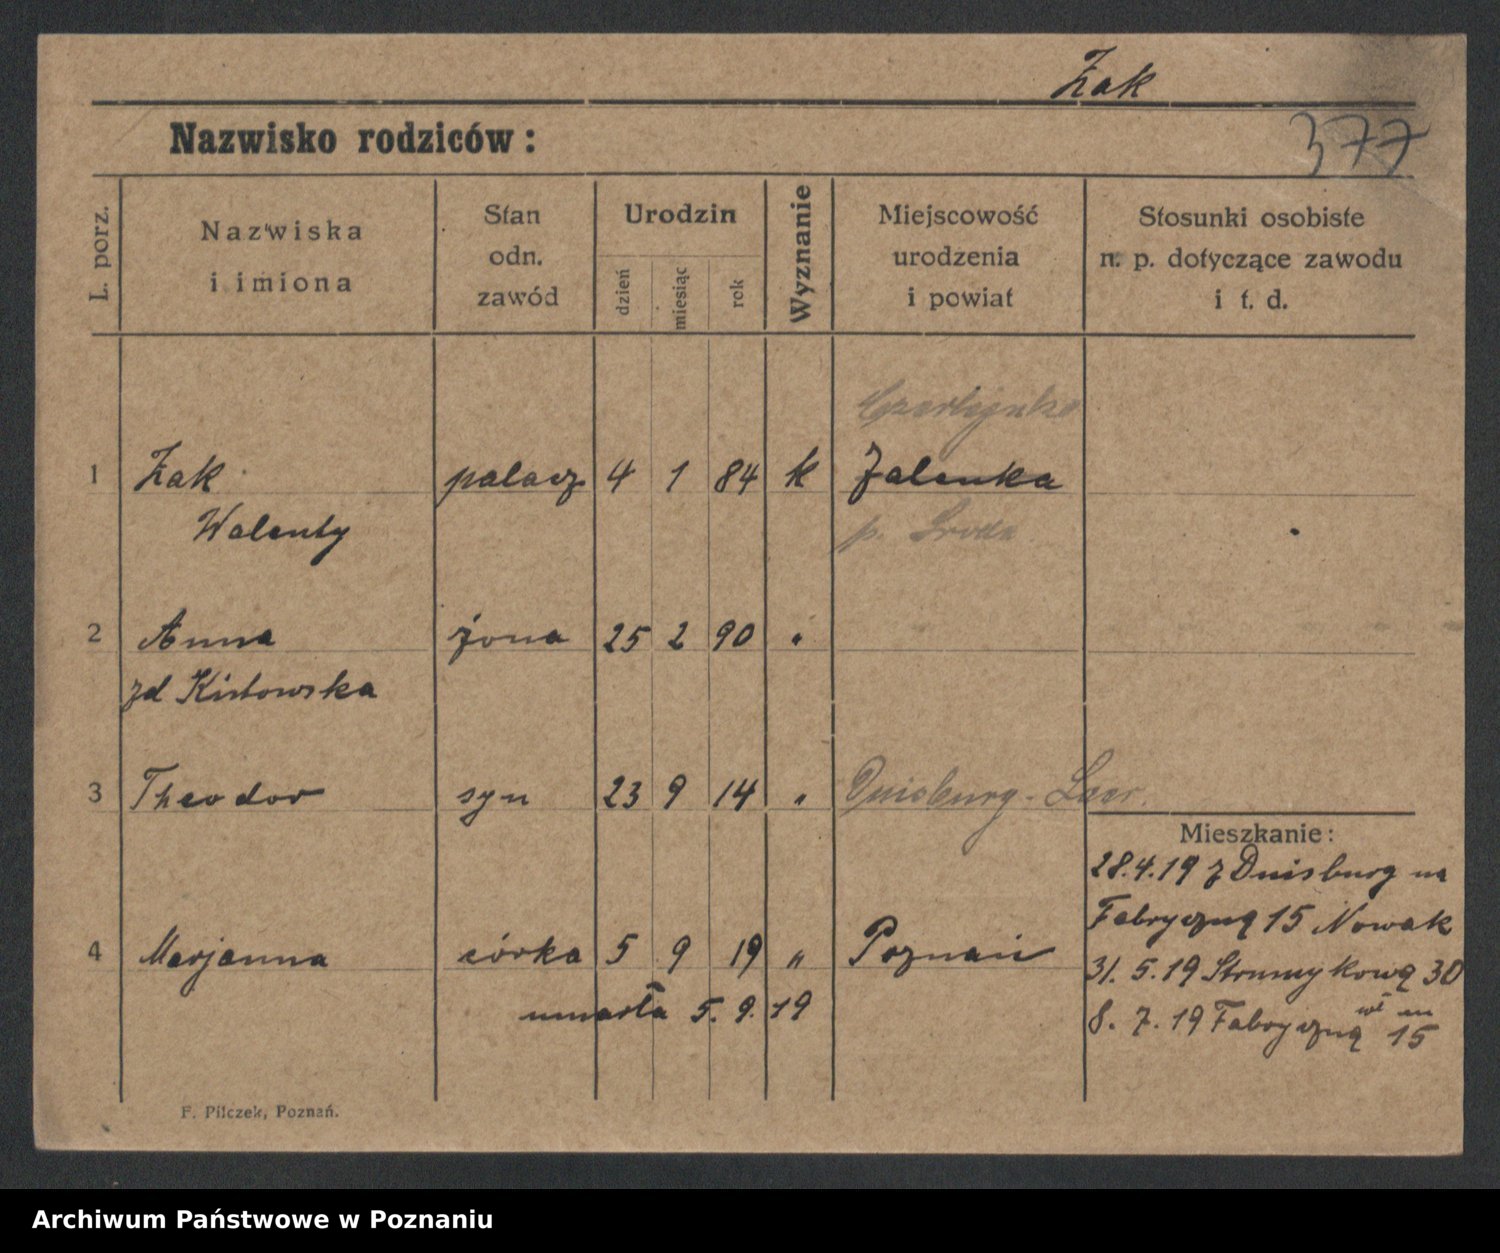 Żak
377
Nazwisko rodziców :
L. porz.
Nazwiska
i imiona
Stan
odn.
zawód
Urodzin
dzień
miesiąc
rok
Wyznanie
Miejscowość
urodzenia
i powiat
Stosunki osobiste
n. p. dotyczące zawodu
i t. d.
1 Żak palacz 4 1 84 k Zalenka
Walenty p. Środa
2 Anna żona 25 2 90 "
zd Kistowska
3 Theodor syn 23 9 14 " Duisburg - Laar.
Mieszkanie :
28.4.19 z Duisburg na
Fabryczną 15 Nowak
4 Marjanna córka 5 9 19 " Poznań
31. 5. 19 Strumykową 30
umarła 5. 9. 19
8. 7. 19 Fabryczną 15
F. Pilczek, Poznań.
Archiwum Państwowe w Poznaniu